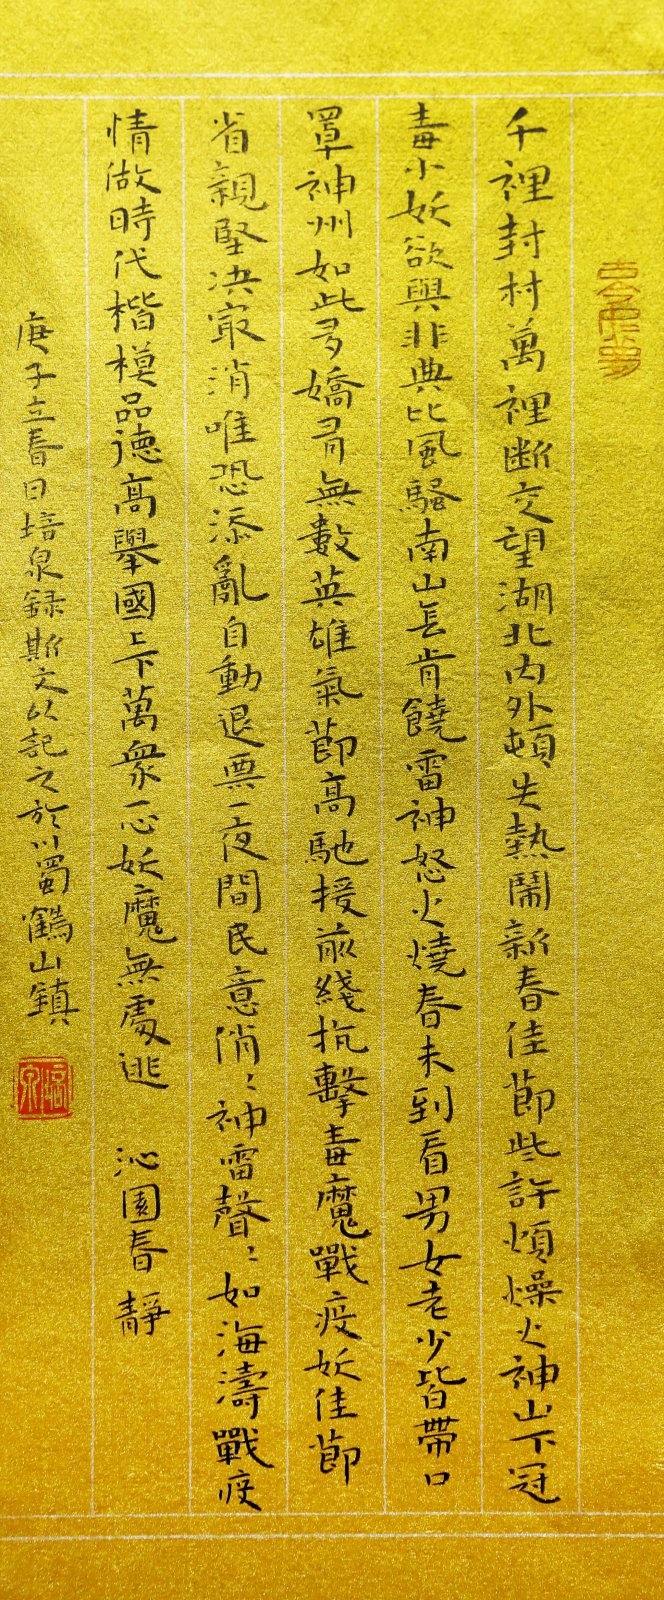 千裡封村萬裡斷交望湖北內外頓失熱鬧新春佳節些許煩燥火神山下冠
毒小妖欲與非典比風騷南山長肯饒雷神怒火燒春未到看男女老少皆帶口
罩神州如此多嬌有無數英雄氣節高馳援前綫抗擊毒魔戰疫妖佳節
省親堅決取消唯恐添亂自動退票一夜間民意俏〻神雷聲〻如海濤戰疫
情做時代楷模品德高舉國上下萬衆一心妖魔無處逃 沁園春 靜
庚子立春日培泉録斯文以記之於川蜀鶴山鎮